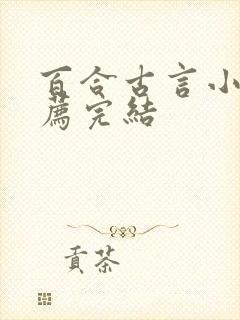 百合古言小
薦完結
貢茶